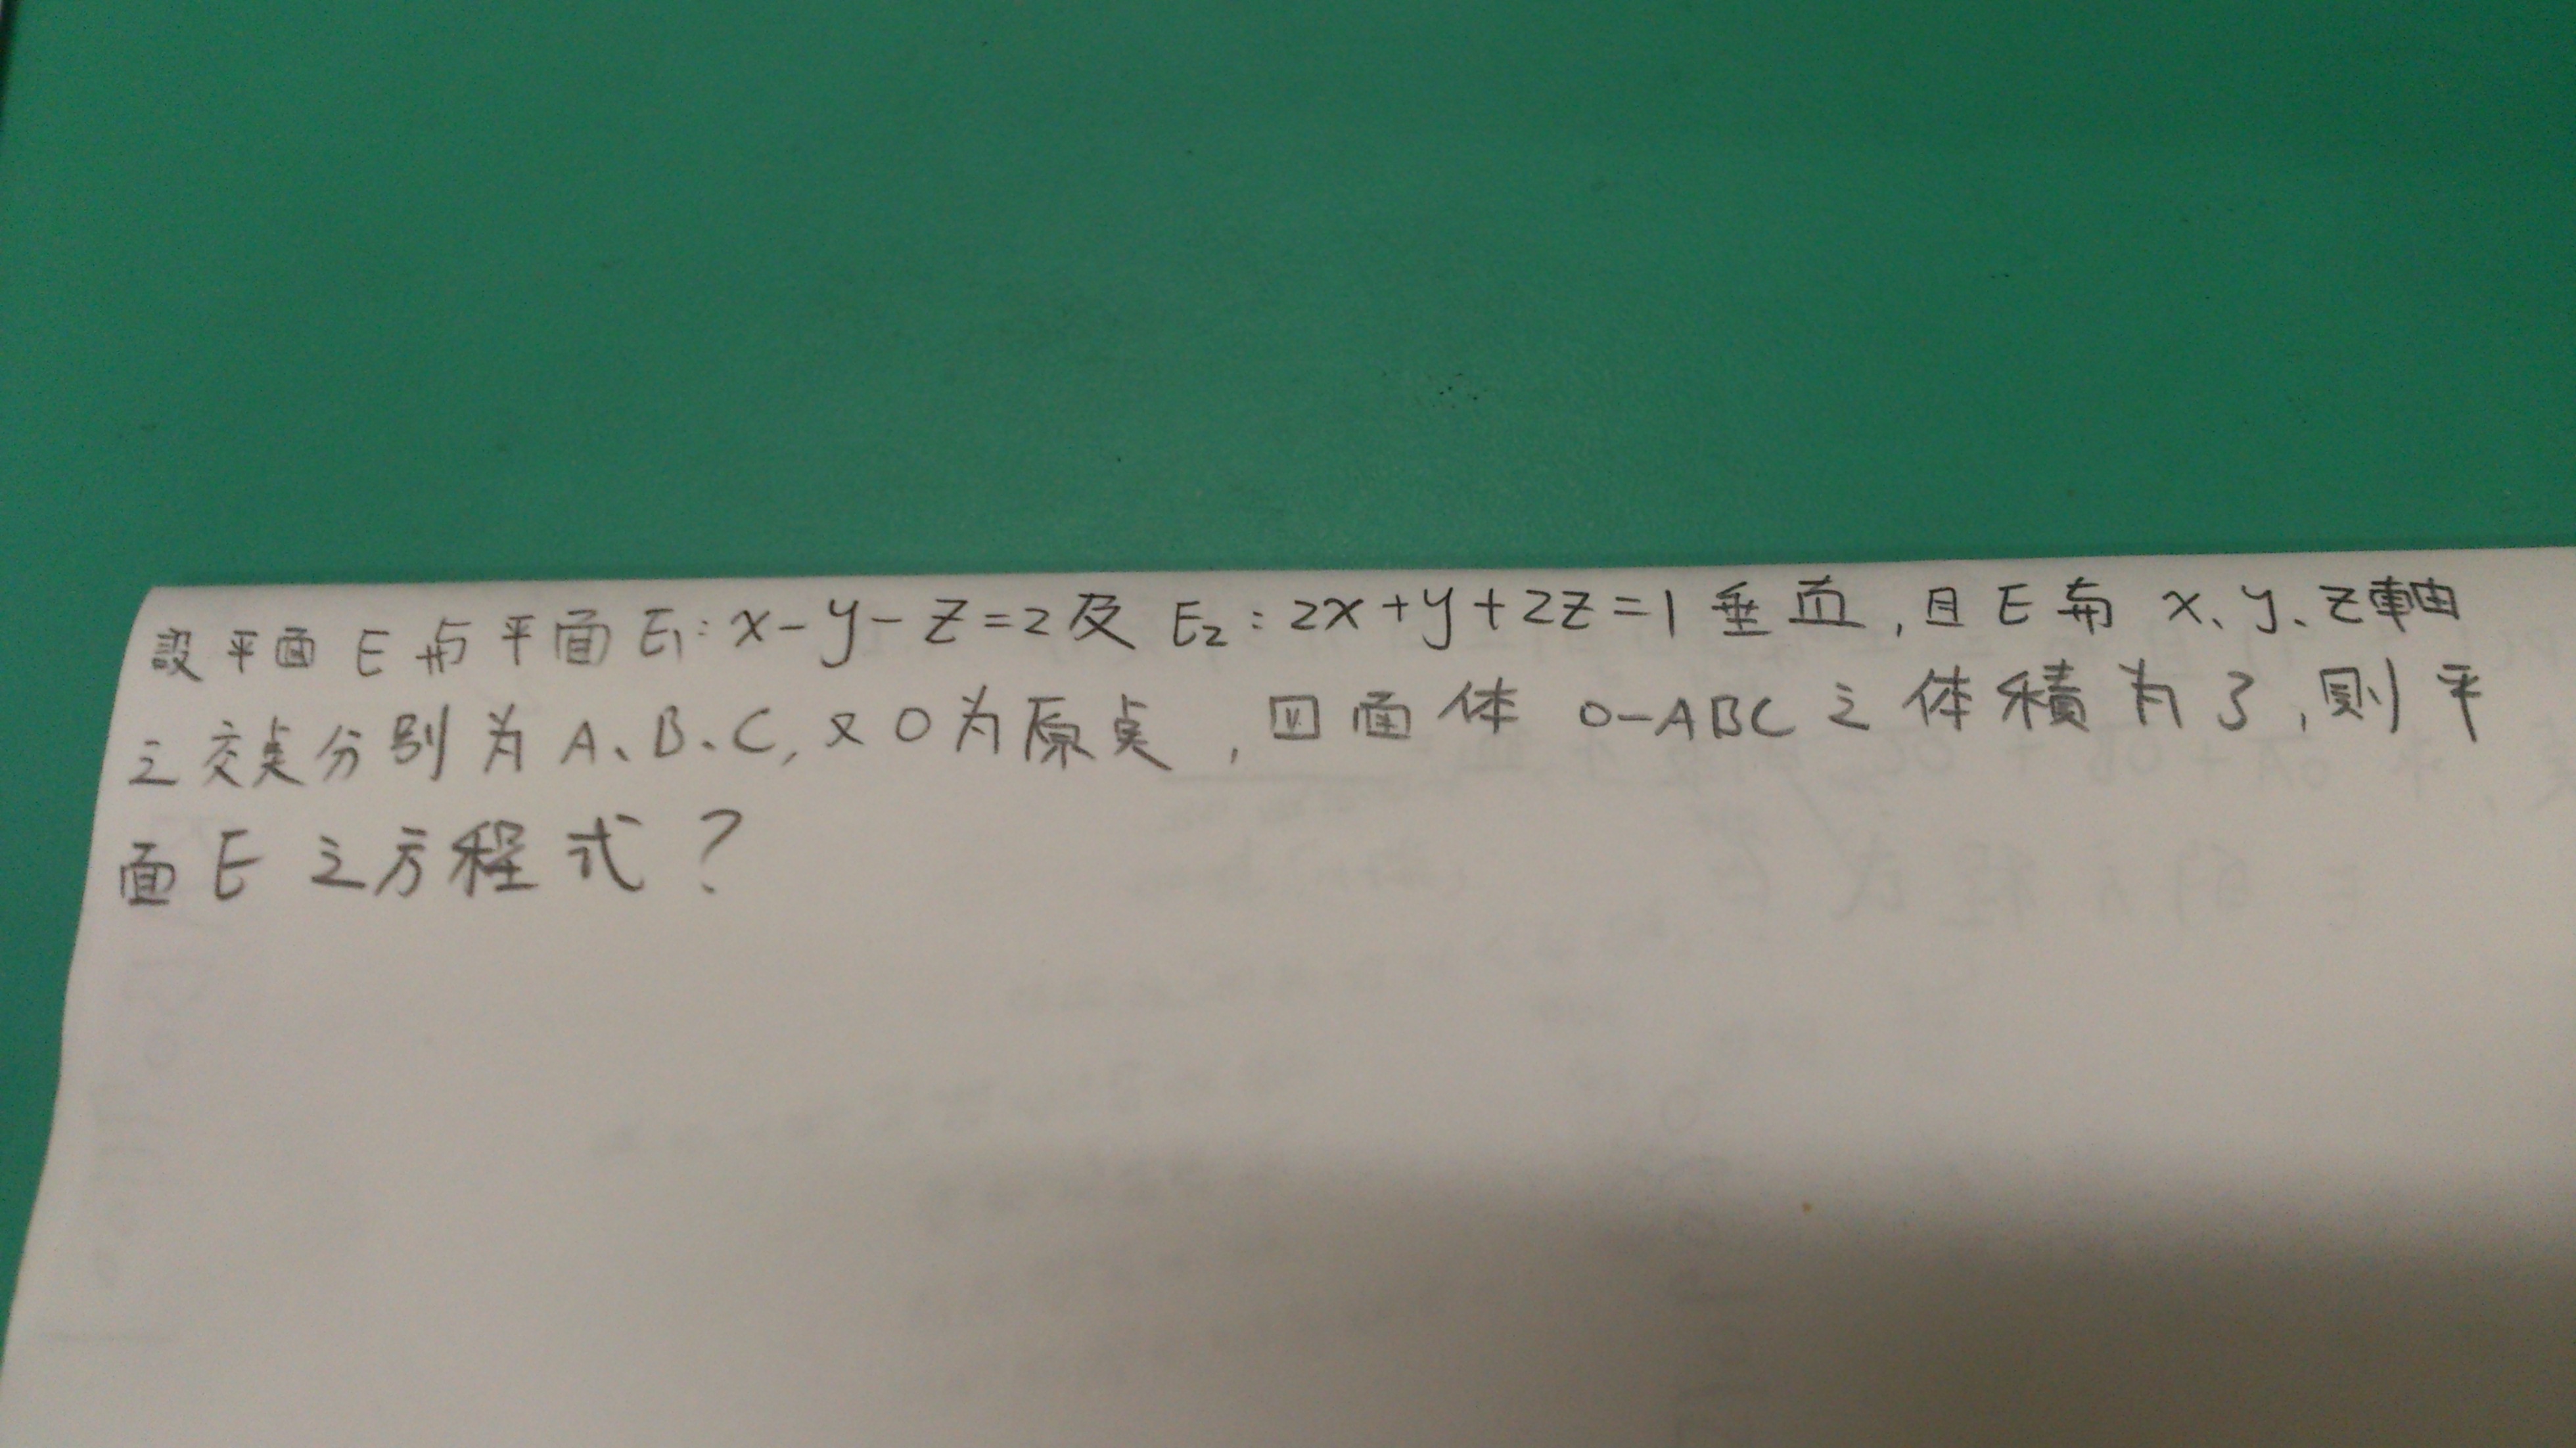 設平面E与平面E₁:x-y-z=2及E₂:2x+y+2z=1垂直,且E与x、y、z軸
之交点分別为A、B、C,又O为原点,四面体O-ABC之体積为3,則平
面E之方程式?